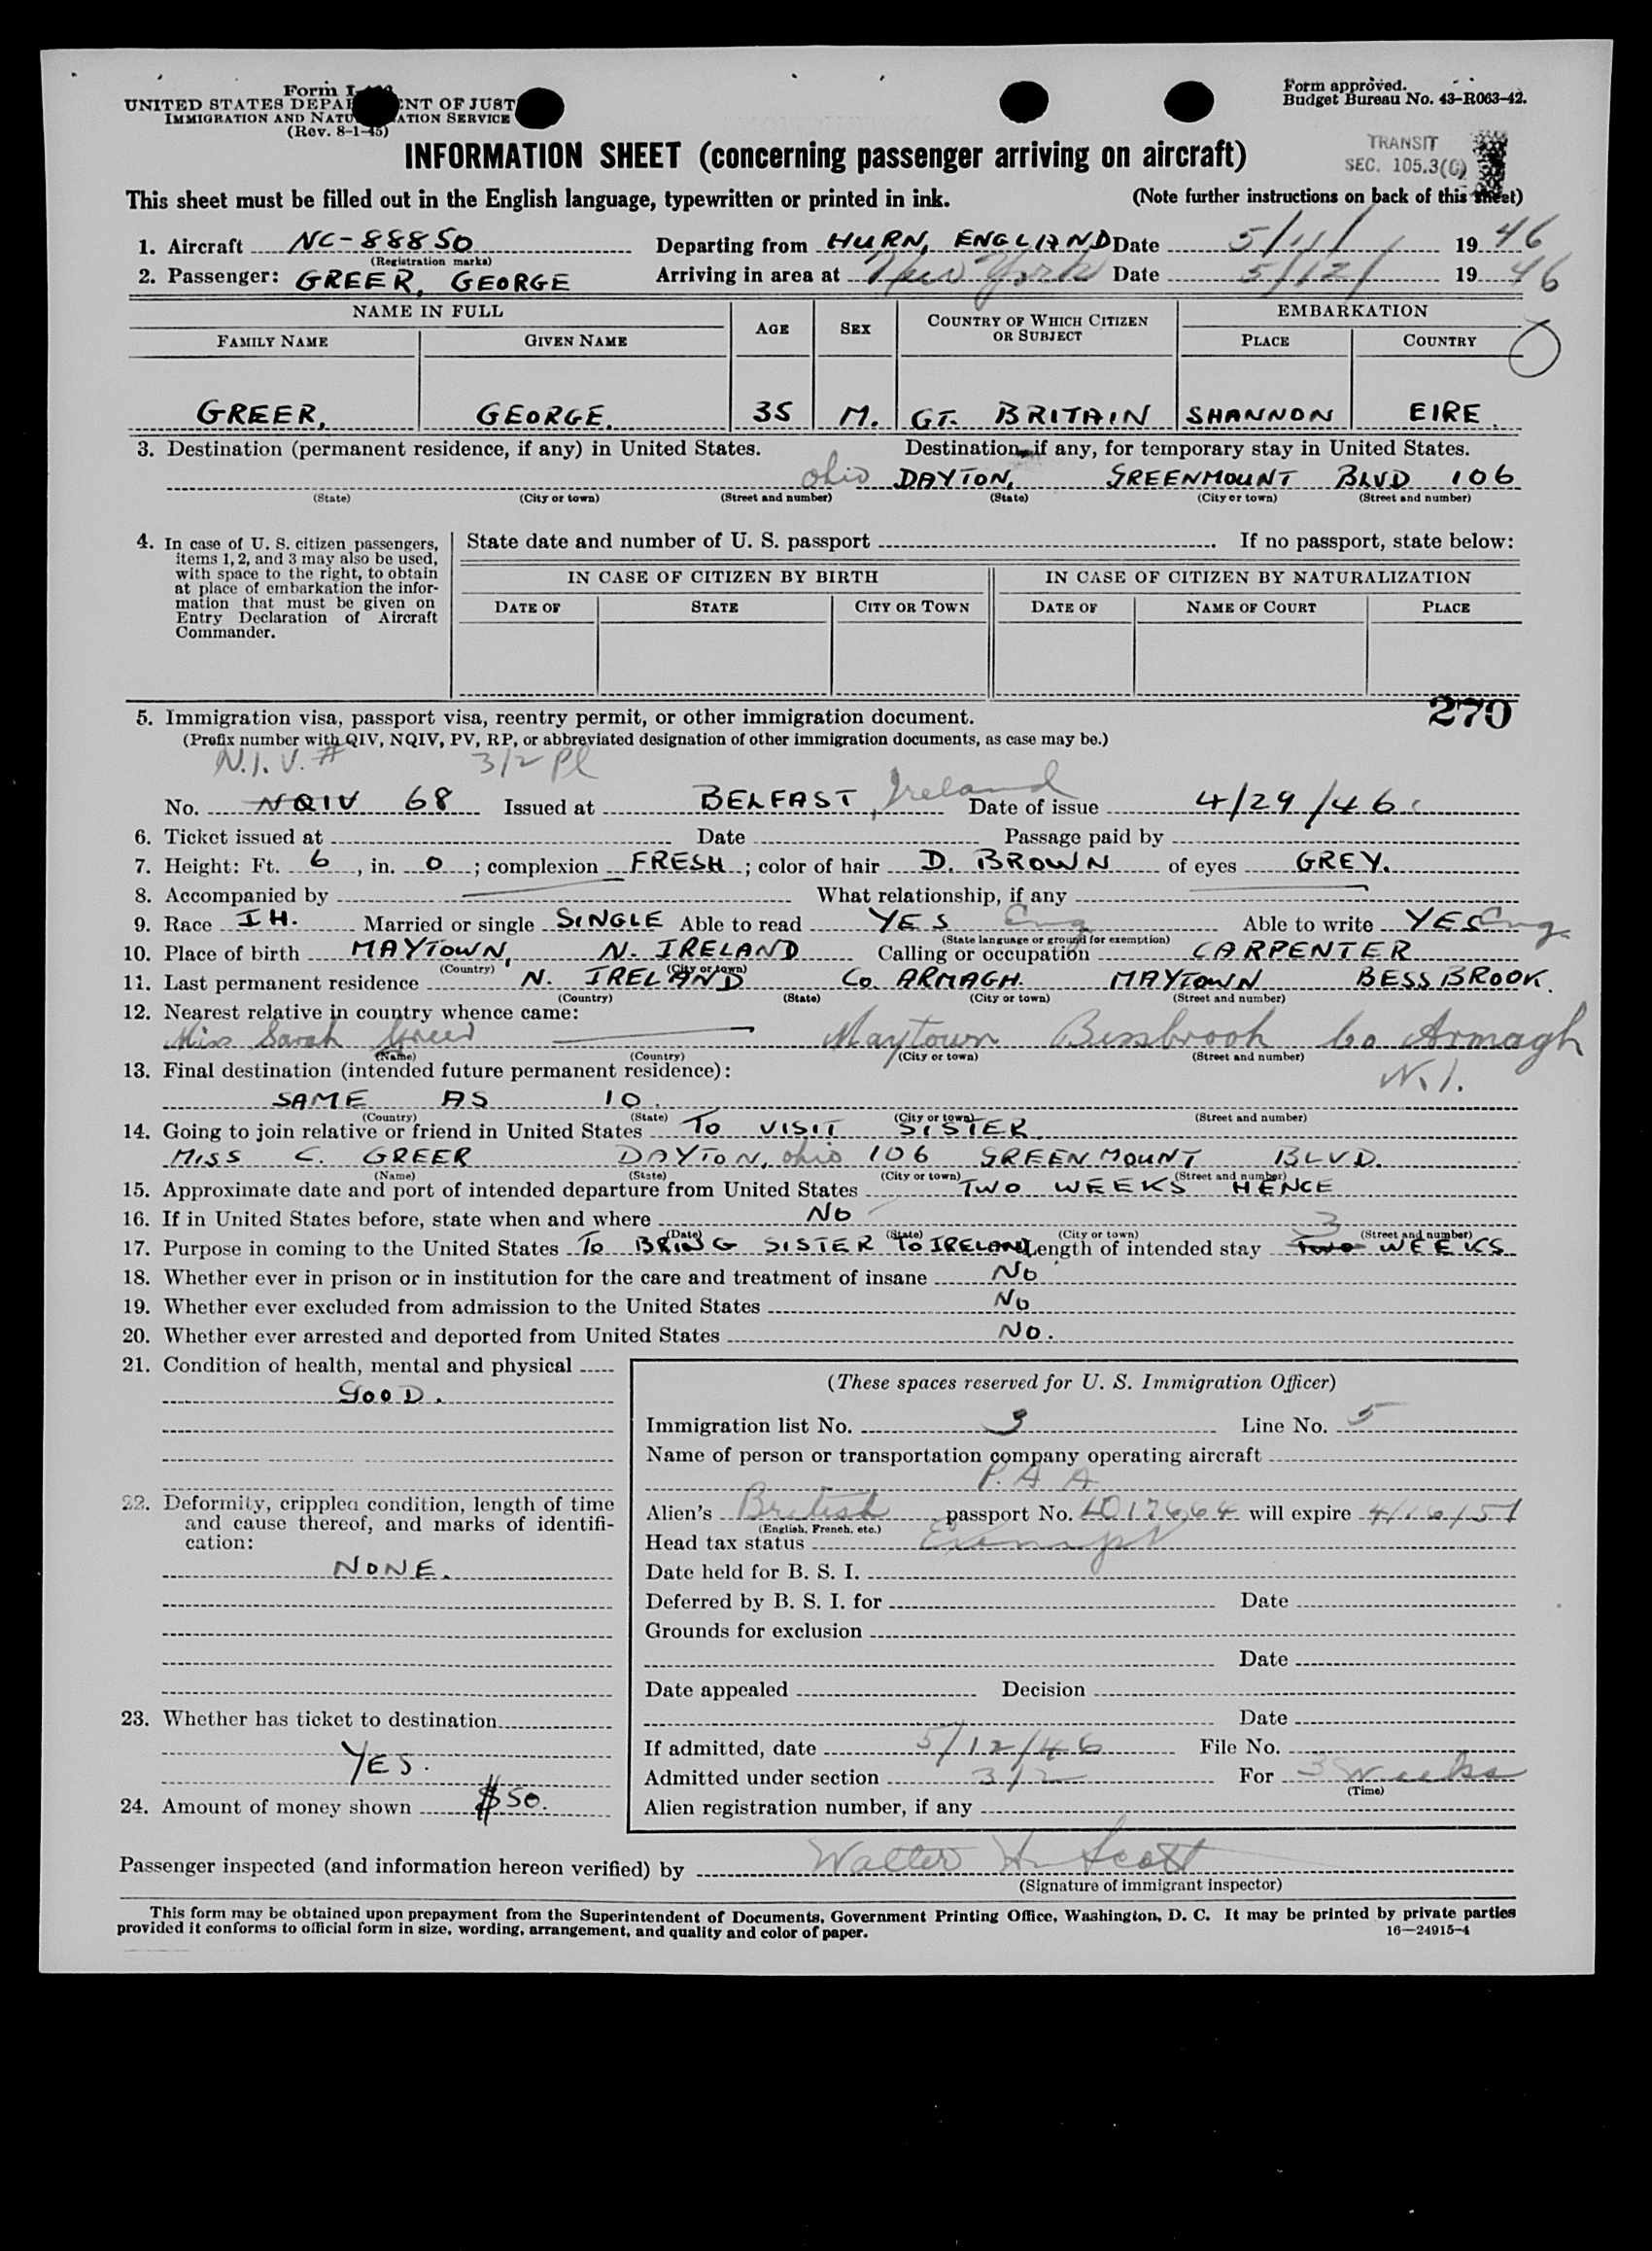 Form I-
UNITED STATES DEPA ENT OF JUST
IMMIGRATION AND NATU ATION SERVICE
(Rev. 8-1-45)
Form approved.
Budget Bureau No. 43-R063-42.
INFORMATION SHEET (concerning passenger arriving on aircraft)
TRANSIT
SEC. 105.3(C)
This sheet must be filled out in the English language, typewritten or printed in ink. (Note further instructions on back of this sheet)
1. Aircraft NC-88850 Departing from HURN, ENGLAND Date 5/11/ 1946
(Registration marks)
2. Passenger: GREER, GEORGE Arriving in area at New York Date 5/12/ 1946
NAME IN FULL AGE SEX COUNTRY OF WHICH CITIZEN OR SUBJECT EMBARKATION
FAMILY NAME GIVEN NAME PLACE COUNTRY
GREER, GEORGE. 35 M. GT. BRITAIN SHANNON EIRE.
3. Destination (permanent residence, if any) in United States. Destination, if any, for temporary stay in United States.
Ohio DAYTON, GREENMOUNT BLVD 106
(State) (City or town) (Street and number) (State) (City or town) (Street and number)
4. In case of U. S. citizen passengers, items 1, 2, and 3 may also be used, with space to the right, to obtain at place of embarkation the information that must be given on Entry Declaration of Aircraft Commander.
State date and number of U. S. passport . If no passport, state below:
IN CASE OF CITIZEN BY BIRTH IN CASE OF CITIZEN BY NATURALIZATION
DATE OF STATE CITY OR TOWN DATE OF NAME OF COURT PLACE
270
5. Immigration visa, passport visa, reentry permit, or other immigration document.
(Prefix number with QIV, NQIV, PV, RP, or abbreviated designation of other immigration documents, as case may be.)
N.I.V. # 3/2 Pl
No. NQIV 68 Issued at BELFAST, Ireland Date of issue 4/29/46
6. Ticket issued at Date Passage paid by
7. Height: Ft. 6, in. 0; complexion FRESH; color of hair D. BROWN of eyes GREY.
8. Accompanied by What relationship, if any
9. Race IH. Married or single SINGLE Able to read YES Eng Able to write YES Eng.
(State language or ground for exemption)
10. Place of birth MAYTOWN, N. IRELAND Calling or occupation CARPENTER
(Country) (City or town)
11. Last permanent residence N. IRELAND Co. ARMAGH. MAYTOWN BESSBROOK.
(Country) (State) (City or town) (Street and number)
12. Nearest relative in country whence came:
Miss Sarah Greer Maytown Bessbrook Co Armagh
(Name) (Country) (City or town) (Street and number)
N.I.
13. Final destination (intended future permanent residence):
SAME AS 10.
(Country) (State) (City or town) (Street and number)
14. Going to join relative or friend in United States TO VISIT SISTER.
MISS C. GREER DAYTON, Ohio 106 GREENMOUNT BLVD.
(Name) (State) (City or town) (Street and number)
15. Approximate date and port of intended departure from United States TWO WEEKS HENCE
16. If in United States before, state when and where NO
(Date) (State) (City or town) (Street and number)
17. Purpose in coming to the United States TO BRING SISTER TO IRELAND Length of intended stay 3 two WEEKS
18. Whether ever in prison or in institution for the care and treatment of insane NO
19. Whether ever excluded from admission to the United States NO
20. Whether ever arrested and deported from United States NO.
21. Condition of health, mental and physical
GOOD.
22. Deformity, crippled condition, length of time and cause thereof, and marks of identification:
NONE.
23. Whether has ticket to destination
YES.
24. Amount of money shown $50.
(These spaces reserved for U. S. Immigration Officer)
Immigration list No. 3 Line No. 5
Name of person or transportation company operating aircraft
P. A A
Alien's British passport No. LO17664 will expire 4/16/51
(English, French, etc.)
Head tax status Exempt
Date held for B. S. I.
Deferred by B. S. I. for Date
Grounds for exclusion
Date
Date appealed Decision
Date
If admitted, date 5/12/46 File No.
Admitted under section 3/2 For 3 Weeks
(Time)
Alien registration number, if any
Passenger inspected (and information hereon verified) by Walter H Scott
(Signature of immigrant inspector)
This form may be obtained upon prepayment from the Superintendent of Documents, Government Printing Office, Washington, D. C. It may be printed by private parties
provided it conforms to official form in size, wording, arrangement, and quality and color of paper. 16—24915-4